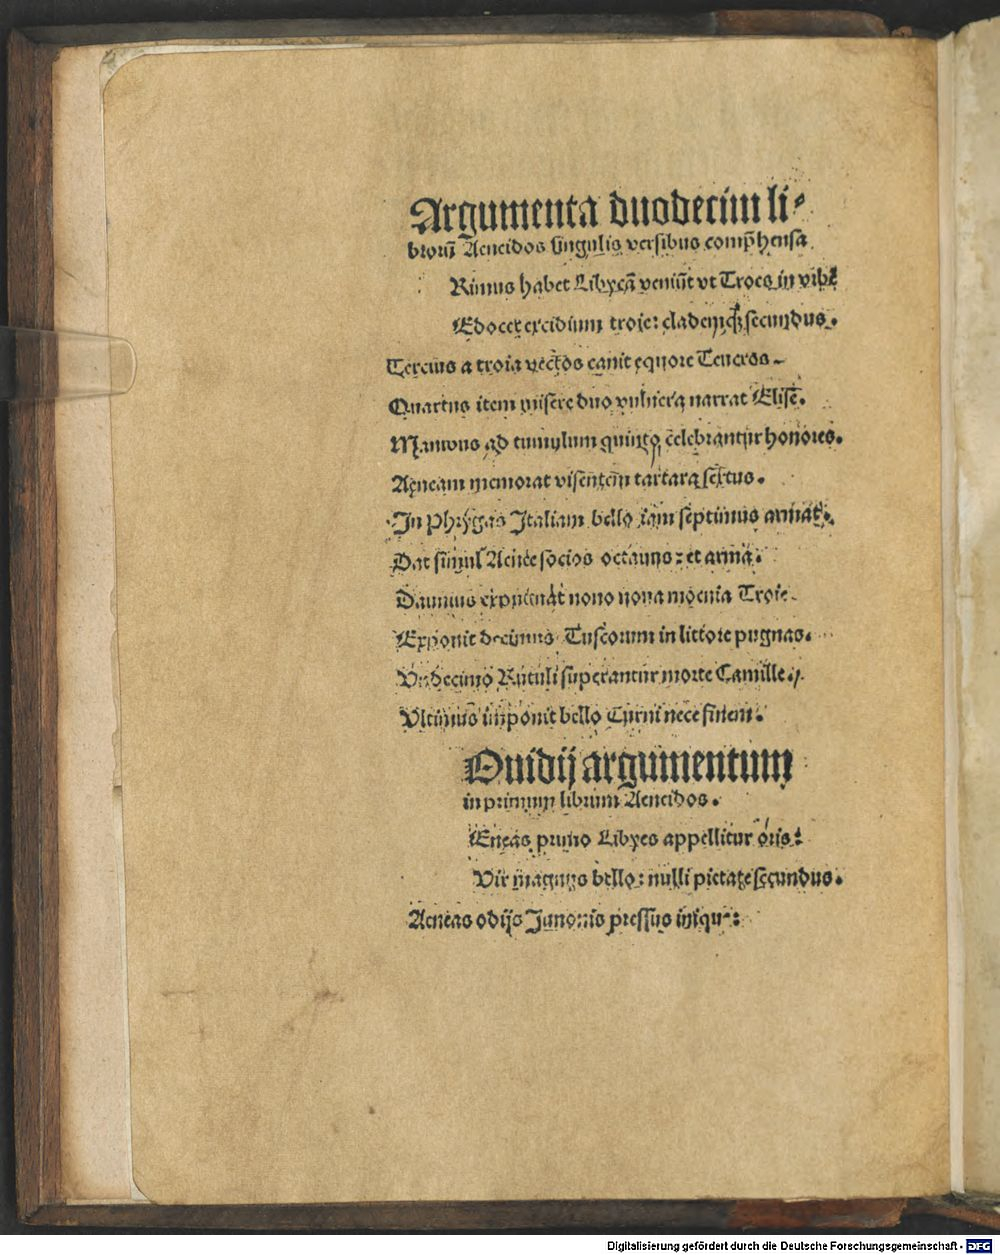 Argumenta duodecim li-
broꝝ Aeneidos singulis versibus comp̄hensa
Rimus habet Libycā veniūt vt Troes in vrbē
Edocet excidium troie: clademqꝫ secundus.
Tercius a troia vectos canit equore Teucros.
Quartus item misere duo vulnera narrat Elise.
Manibus ad tumulum quinto celebrantur honores.
Aeneam memorat visentem tartara sextus.
In Phrygas Italiam bello iam septimus armat.
Dat simul Aenee socios octauus: et arma.
Daunius expugnat nono noua moenia Troie.
Exponit decimus Tuscorum in littore pugnas.
Vndecimo Rutuli superantur morte Camille.
Vltimus imponit bello Turni nece finem.
Ouidij argumentum
in primum librum Aeneidos.
Eneas primo Libyes appellitur oris:
Vir magnus bello: nulli pietate secundus.
Aeneas odijs Junonis pressus inique:
Digitalisierung gefördert durch die Deutsche Forschungsgemeinschaft - DFG